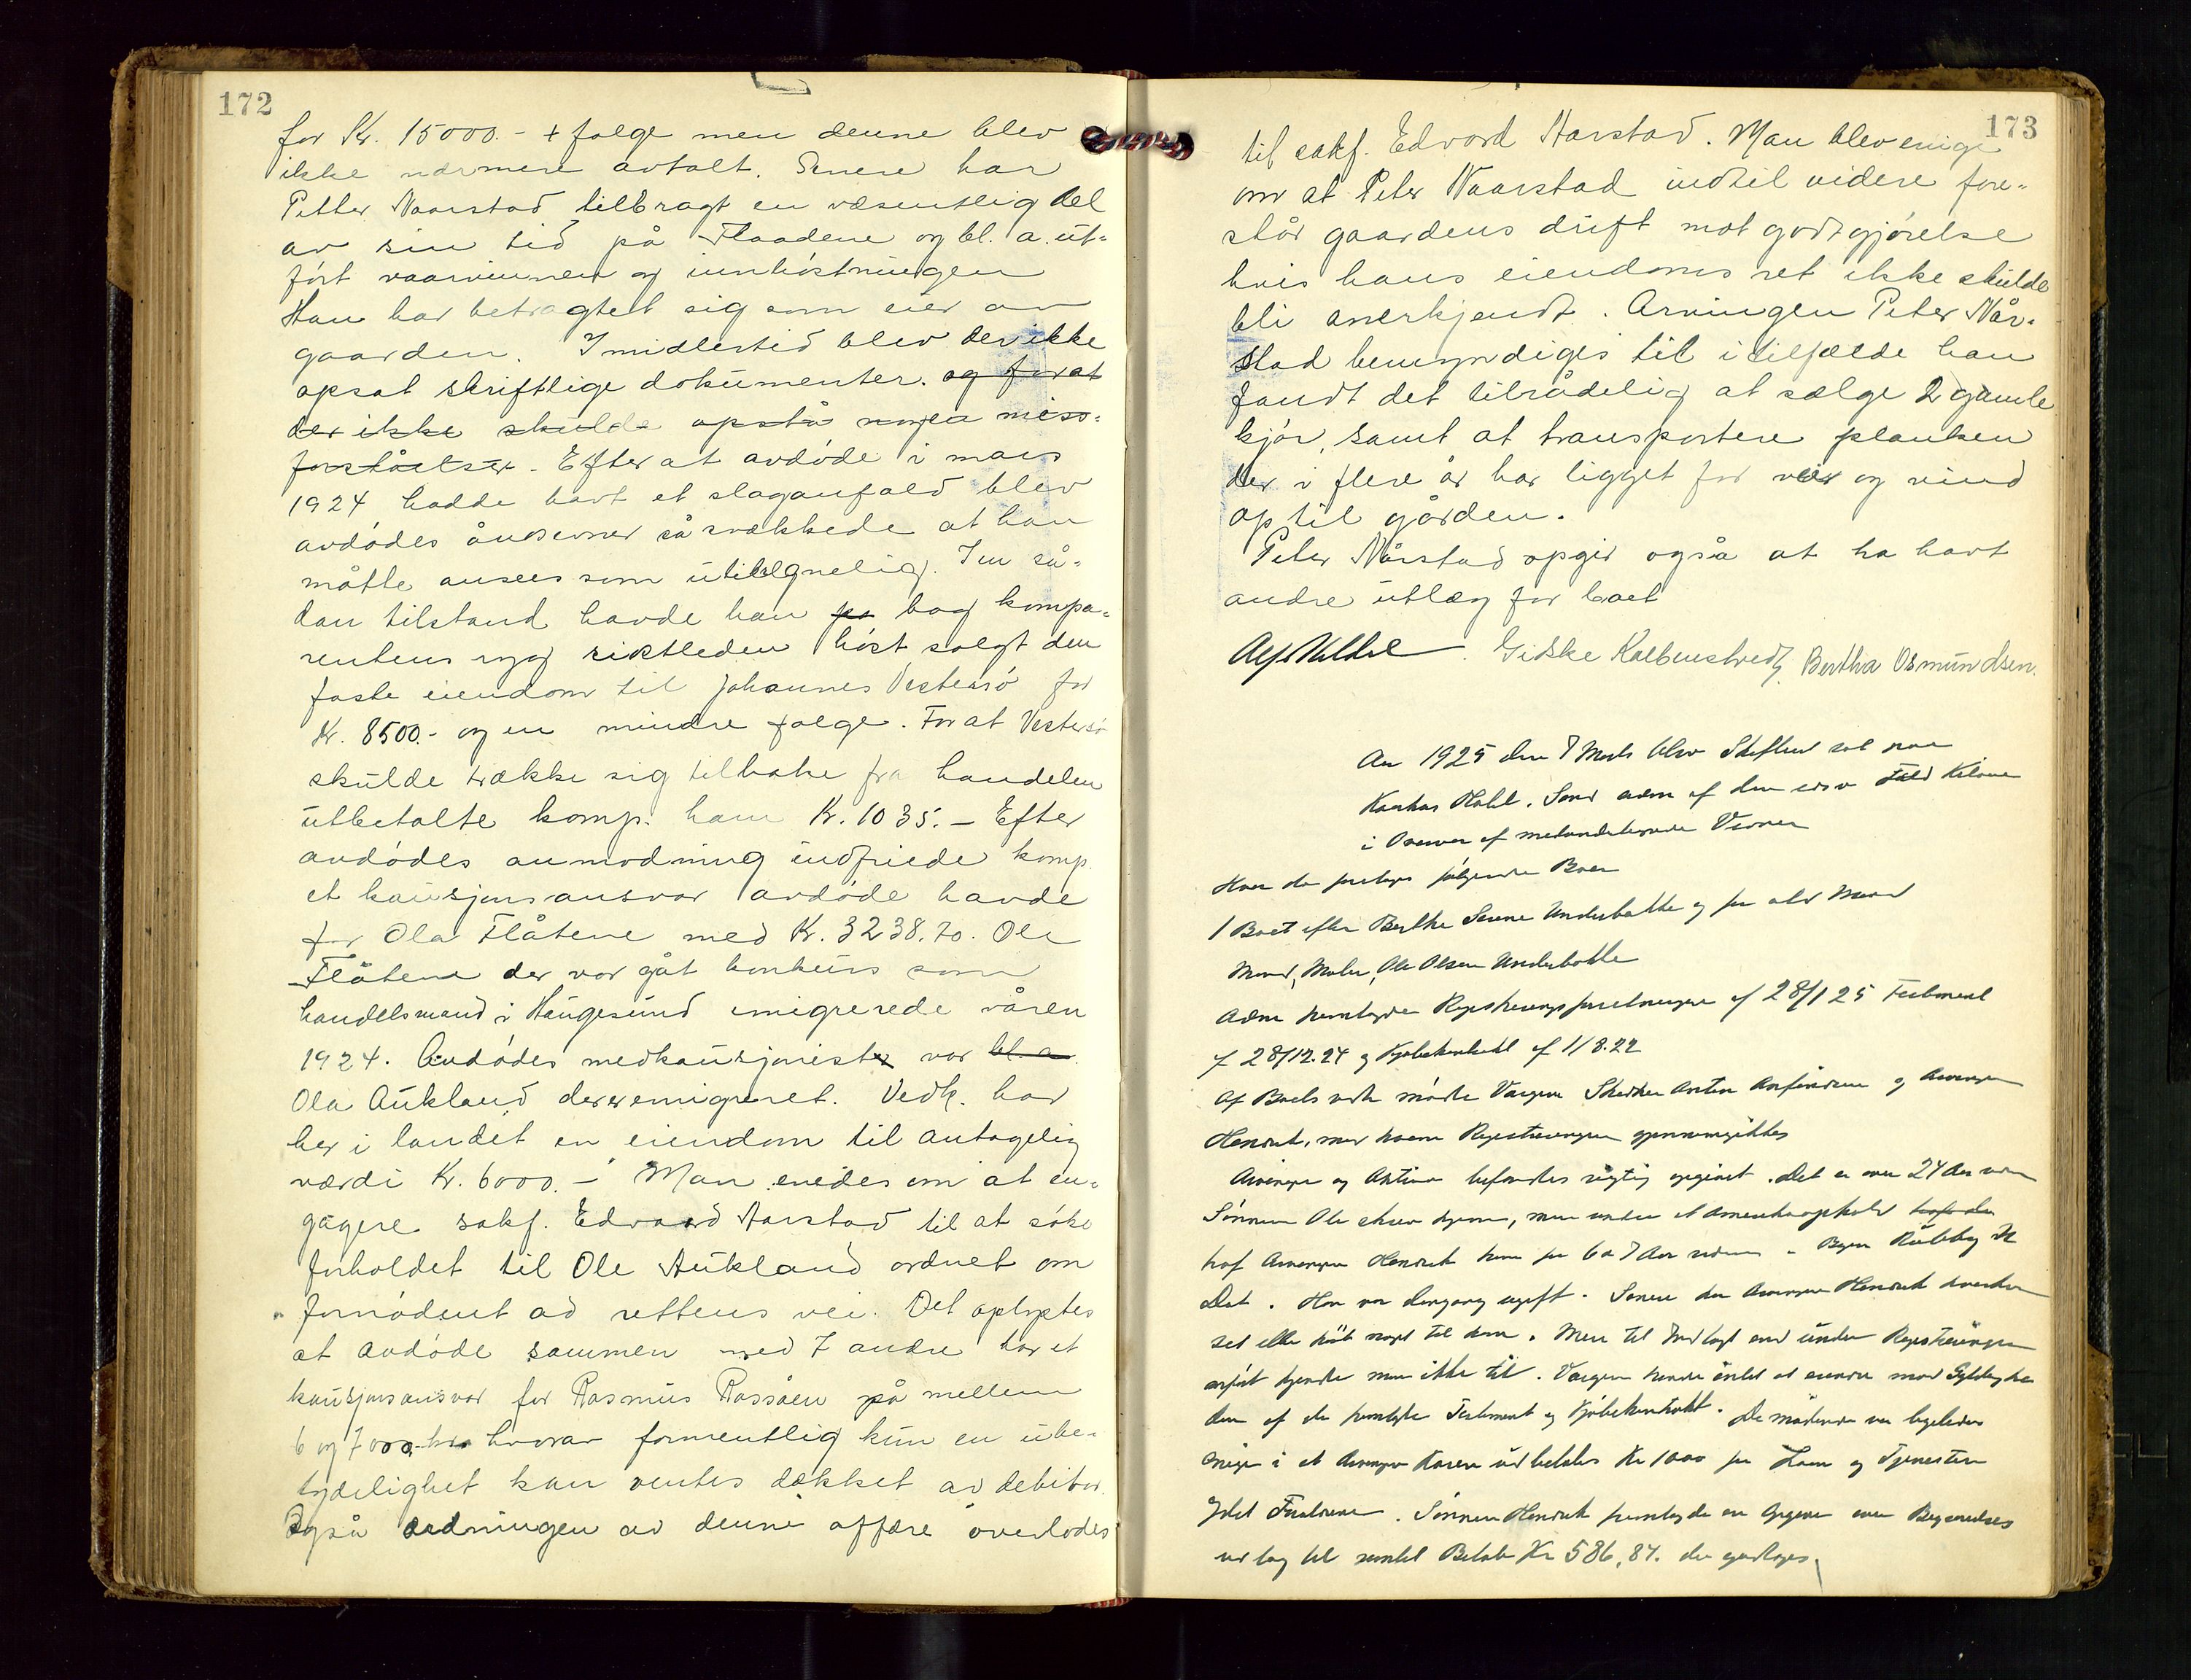 172
for Kr. 15000.- + følge men denne blev
ikke nærmere avtalt. Senere har
Petter Naarstad tilbragt en væsentlig del
av sin tid på Flaadene og bl. a. ut-
ført vaarvinnen og innhøstningen
Han har betragtet sig som eier av
gaarden. Imidlertid blev der ikke
opsat skriftlige dokumenter. og for at
der ikke skulde opstå nogen miss-
forståelser. Efter at avdøde i mars
1924 hadde havt et slaganfald blev
avdødes åndsevner så svækkede at han
måtte ansees som utilregnelig. I en så-
dan tilstand havde han bag kompa-
rentens ryg sistleden høst solgt den
faste eiendom til Johannes Vestersø for
Kr. 8500.- og en mindre følge. For at Vestersø
skulde trække sig tilbake fra handelen
utbetalte komp. ham Kr. 1035.- Efter
avdødes anmodning indfriede komp.
et kausjonsansvar avdøde havde
for Ola Flåtene med Kr. 3238.70. Ole
Flåtene der var gåt konkurs som
handelsmand i Haugesund emigrerede våren
1924. Avdødes medkausjonist var bl. a.
Ola Aukland der er emigreret. Vedk. har
her i landet en eiendom til antagelig
værdi Kr. 6000.- Man enedes om at en-
gagere sakf. Edvard Harstad til at søke
forholdet til Ole Aukland ordnet om
fornødent ad rettens vei. Det oplystes
at avdøde sammen med 7 andre har et
kausjonsansvar for Rasmus Rossåen på mellem
6 og 7000 hvorav formentlig kun en ube-
tydelighet kan ventes dækket av debitor.
Også ordningen av denne affære overlodes
173
til sakf. Edvard Harstad. Man blev enige
om at Peter Naarstad indtil videre fore-
står gaardens drift mot godtgjørelse
hvis hans eiendoms ret ikke skulde
bli anerkjendt. Arvingen Peter Når-
stad bemyndiges til i tilfælde han
fandt det tilrådelig at sælge 2 gamle
kjør, samt at transportere planken
der i flere år har ligget for veir og vind
op til gården.
Peter Nårstad opgir også at ha havt
andre utlæg for boet
Gidske Kolbenstvedt, Bertha Osmundsen.
An 1925 den 7 Marts blev Skifteret sat paa
Hotel. Sorenskr. af den
i Overvær af medunderskrevne Vidner
Hvor da foretages følgende Boer
1 Boet efter Berthe Serine Underbakke og
Mand, Maler, Ole Olsen Underbakke
Adm fremlagde Registreringsforretningen af 28/1 25 Testament
af 28/12.24 og Kjøbekontrakt af 1/8.22
Af Boets vedk. mødte Værgen Anton og Arvingen
Henrik, med hvem Registreringen gjennemgikkes
Arvinger og Aktiva befandtes rigtig opgivet. Det er over 24 Aar siden
Sønnen Ole skrev hjem, men under et Amerikaophold
traf Arvingen Henrik ham for 6 a 7 Aar siden
Dat. Han var dengang ugift. Senere har Arvingen Henrik hverken
set eller hørt noget til ham. Mere til Indtægt end under Registreringen
anført kjendte man ikke til. Værgen
den af de fremlagte Testament og Kjøbekontrakt. De mødende var ligeledes
enige i at Arvingen udbetales Kr 1000 for Løn og Tjenester
ydet Forældrene. Sønnen Henrik fremlagde en Opgave over Begravelses
udlæg til samlet Beløb Kr 586,84. der godtoges